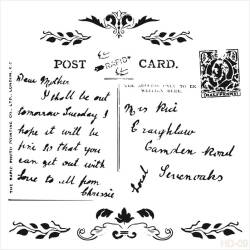 POST CARD.
RAPID
THE ADDRESS ONLY TO BE
WRITTEN HERE
THE RAPID PHOTO PRINTING CO. LTD., LONDON, E.C.
HALFPENNY
Dear Mother
I shall be out
tomorrow Tuesday I
hope it will be
fine so that you
can get out with
love to all from
Chrissie
Mrs Rice
Craighlaw
Camden Road
Sevenoaks
HD-09